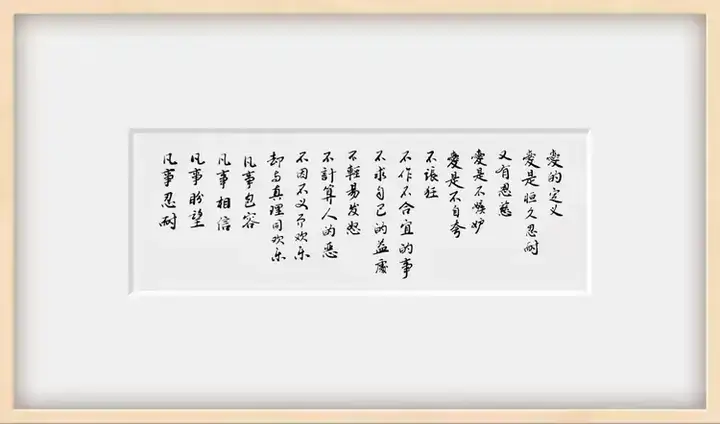 愛的定义
愛是恒久忍耐
又有恩慈
愛是不嫉妒
愛是不自夸
不張狂
不作不合宜的事
不求自己的益處
不輕易发怒
不計算人的惡
不因不义而欢乐
却与真理同欢乐
凡事包容
凡事相信
凡事盼望
凡事忍耐